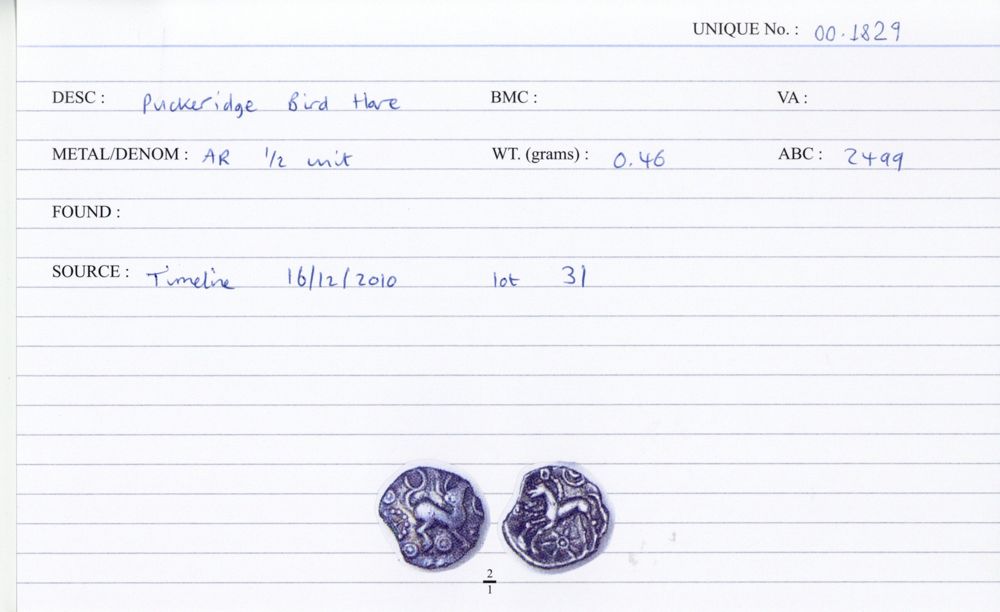 UNIQUE No. : 00.1829
DESC : Puckeridge Bird Hare BMC : VA :
METAL/DENOM : AR 1/2 unit WT. (grams) : 0.46 ABC : 2499
FOUND :
SOURCE : Timeline 16/12/2010 lot 31
2
1